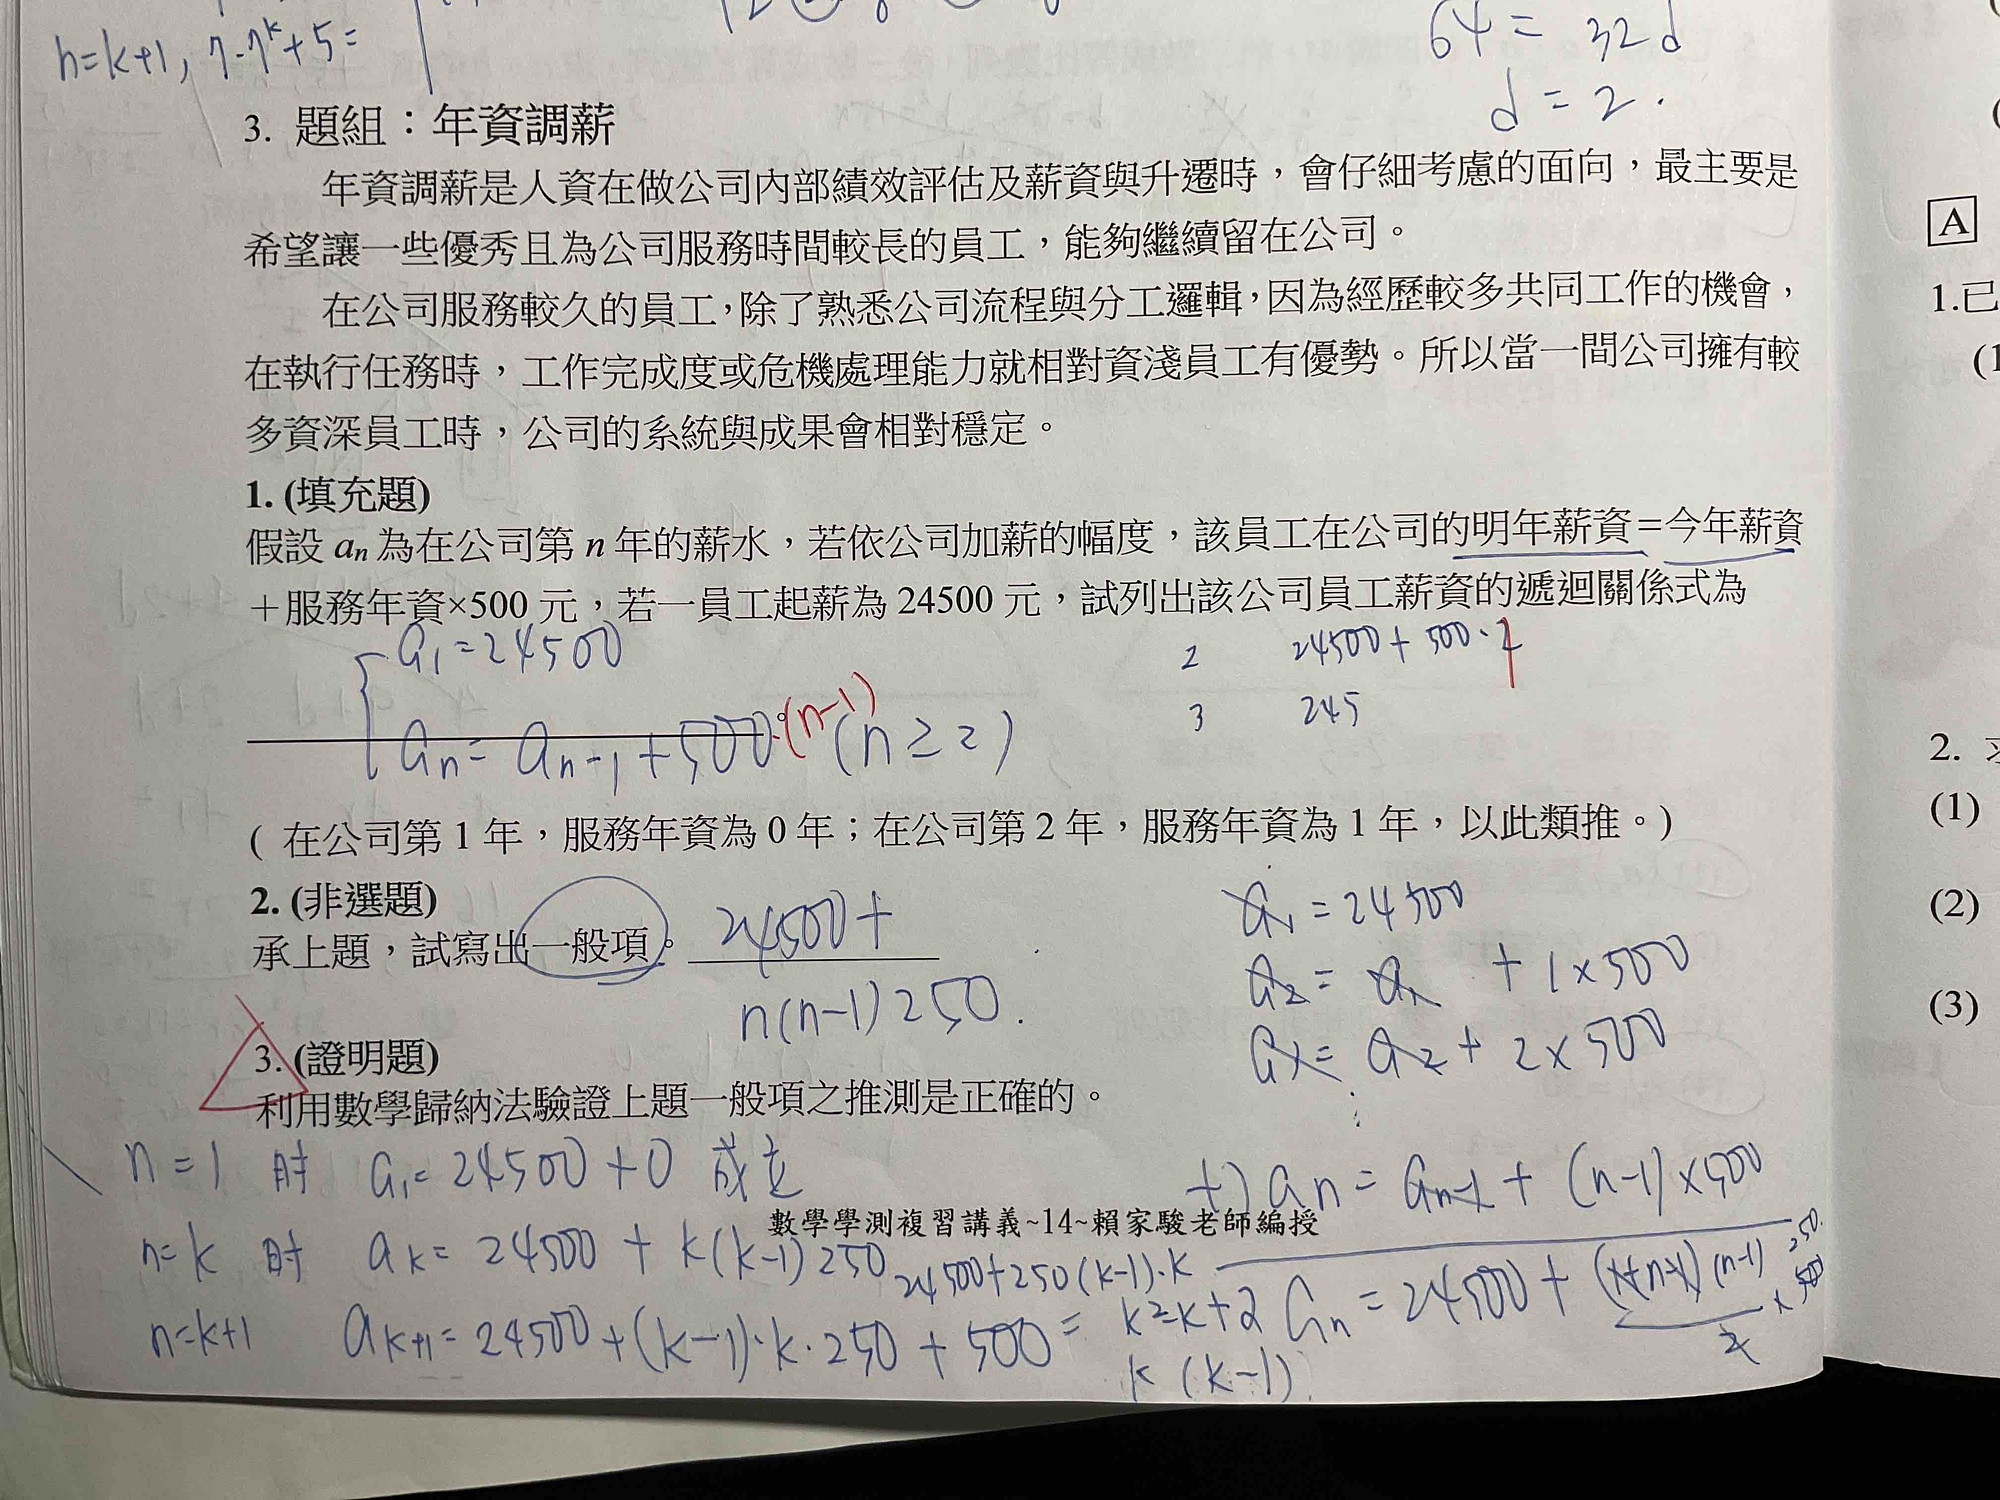 n=k+1, 7·7^k+5=
64 = 32d
d = 2.
3. 題組：年資調薪
年資調薪是人資在做公司內部績效評估及薪資與升遷時，會仔細考慮的面向，最主要是
希望讓一些優秀且為公司服務時間較長的員工，能夠繼續留在公司。
在公司服務較久的員工，除了熟悉公司流程與分工邏輯，因為經歷較多共同工作的機會，
在執行任務時，工作完成度或危機處理能力就相對資淺員工有優勢。所以當一間公司擁有較
多資深員工時，公司的系統與成果會相對穩定。
1. (填充題)
假設 an 為在公司第 n 年的薪水，若依公司加薪的幅度，該員工在公司的明年薪資=今年薪資
＋服務年資×500 元，若一員工起薪為 24500 元，試列出該公司員工薪資的遞迴關係式為
a1=24500
2 24500+500·1
3 245
an = an-1+500·(n-1) (n≥2)
。
( 在公司第 1 年，服務年資為 0 年；在公司第 2 年，服務年資為 1 年，以此類推。)
2. (非選題)
承上題，試寫出一般項。 24500+
n(n-1)250.
a1 = 24500
a2 = a1 + 1×500
= a2 + 2×500
3. (證明題)
利用數學歸納法驗證上題一般項之推測是正確的。
n=1 時 a1=24500+0 成立
+) an = an-1 + (n-1)×500
數學學測複習講義~14~賴家駿老師編授
n=k 時 ak= 24500 + k(k-1)250
24500+250(k-1)·k
an = 24500 + (1+n-1)(n-1)/2 × 500 250
n=k+1 ak+1=24500+(k-1)·k·250+500=
k²-k+2
k(k-1)
A
1.已
(1
2.
(1)
(2)
(3)